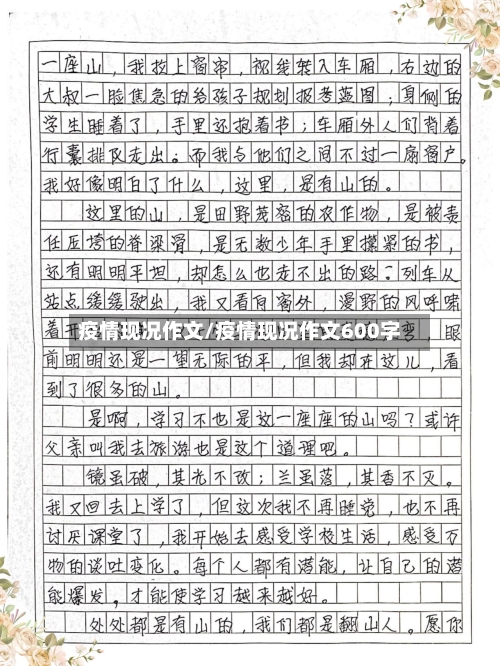 一座山，我拉上窗帘，视线转入车厢，右边的
大叔一脸焦急的给孩子规划报考蓝图；身侧的
学生睡着了，手里还抱着书；车厢外人们背着
行囊排队走出。而我与他们之间不过一扇窗户。
我好像明白了什么，这里，是有山的。
这里的山，是田野茂密的农作物，是被责
任压垮的脊梁骨，是无数少年手里攥紧的书，
还有明明平坦，却怎么也走不出的路。列车从
站点缓缓驶出，我又看向窗外，漫野的风呼啸
着
疫情现况作文/疫情现况作文600字
弯，眼
前明明还是一望无际的平，但我却在这儿，看
到了很多的山。
是啊，学习不也是这一座座的山吗？或许
父亲叫我去旅游也是这个道理吧。
镜虽破，其光不改；兰虽落，其香不灭。
我又回去上学了，但这次我不再睡觉，也不再
讨厌课堂了，我开始去感受学校生活，感受万
物的谈吐变化。每个人都有潜能，让自己的潜
能爆发，才能使学习越来越好。
处处都是有山的，我们都是翻山人。愿你